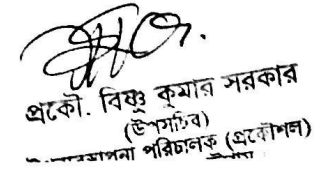 প্রকৌ. বিষ্ণু কুমার সরকার
(উপসচিব)
পরিচালক (প্রকৌশল)